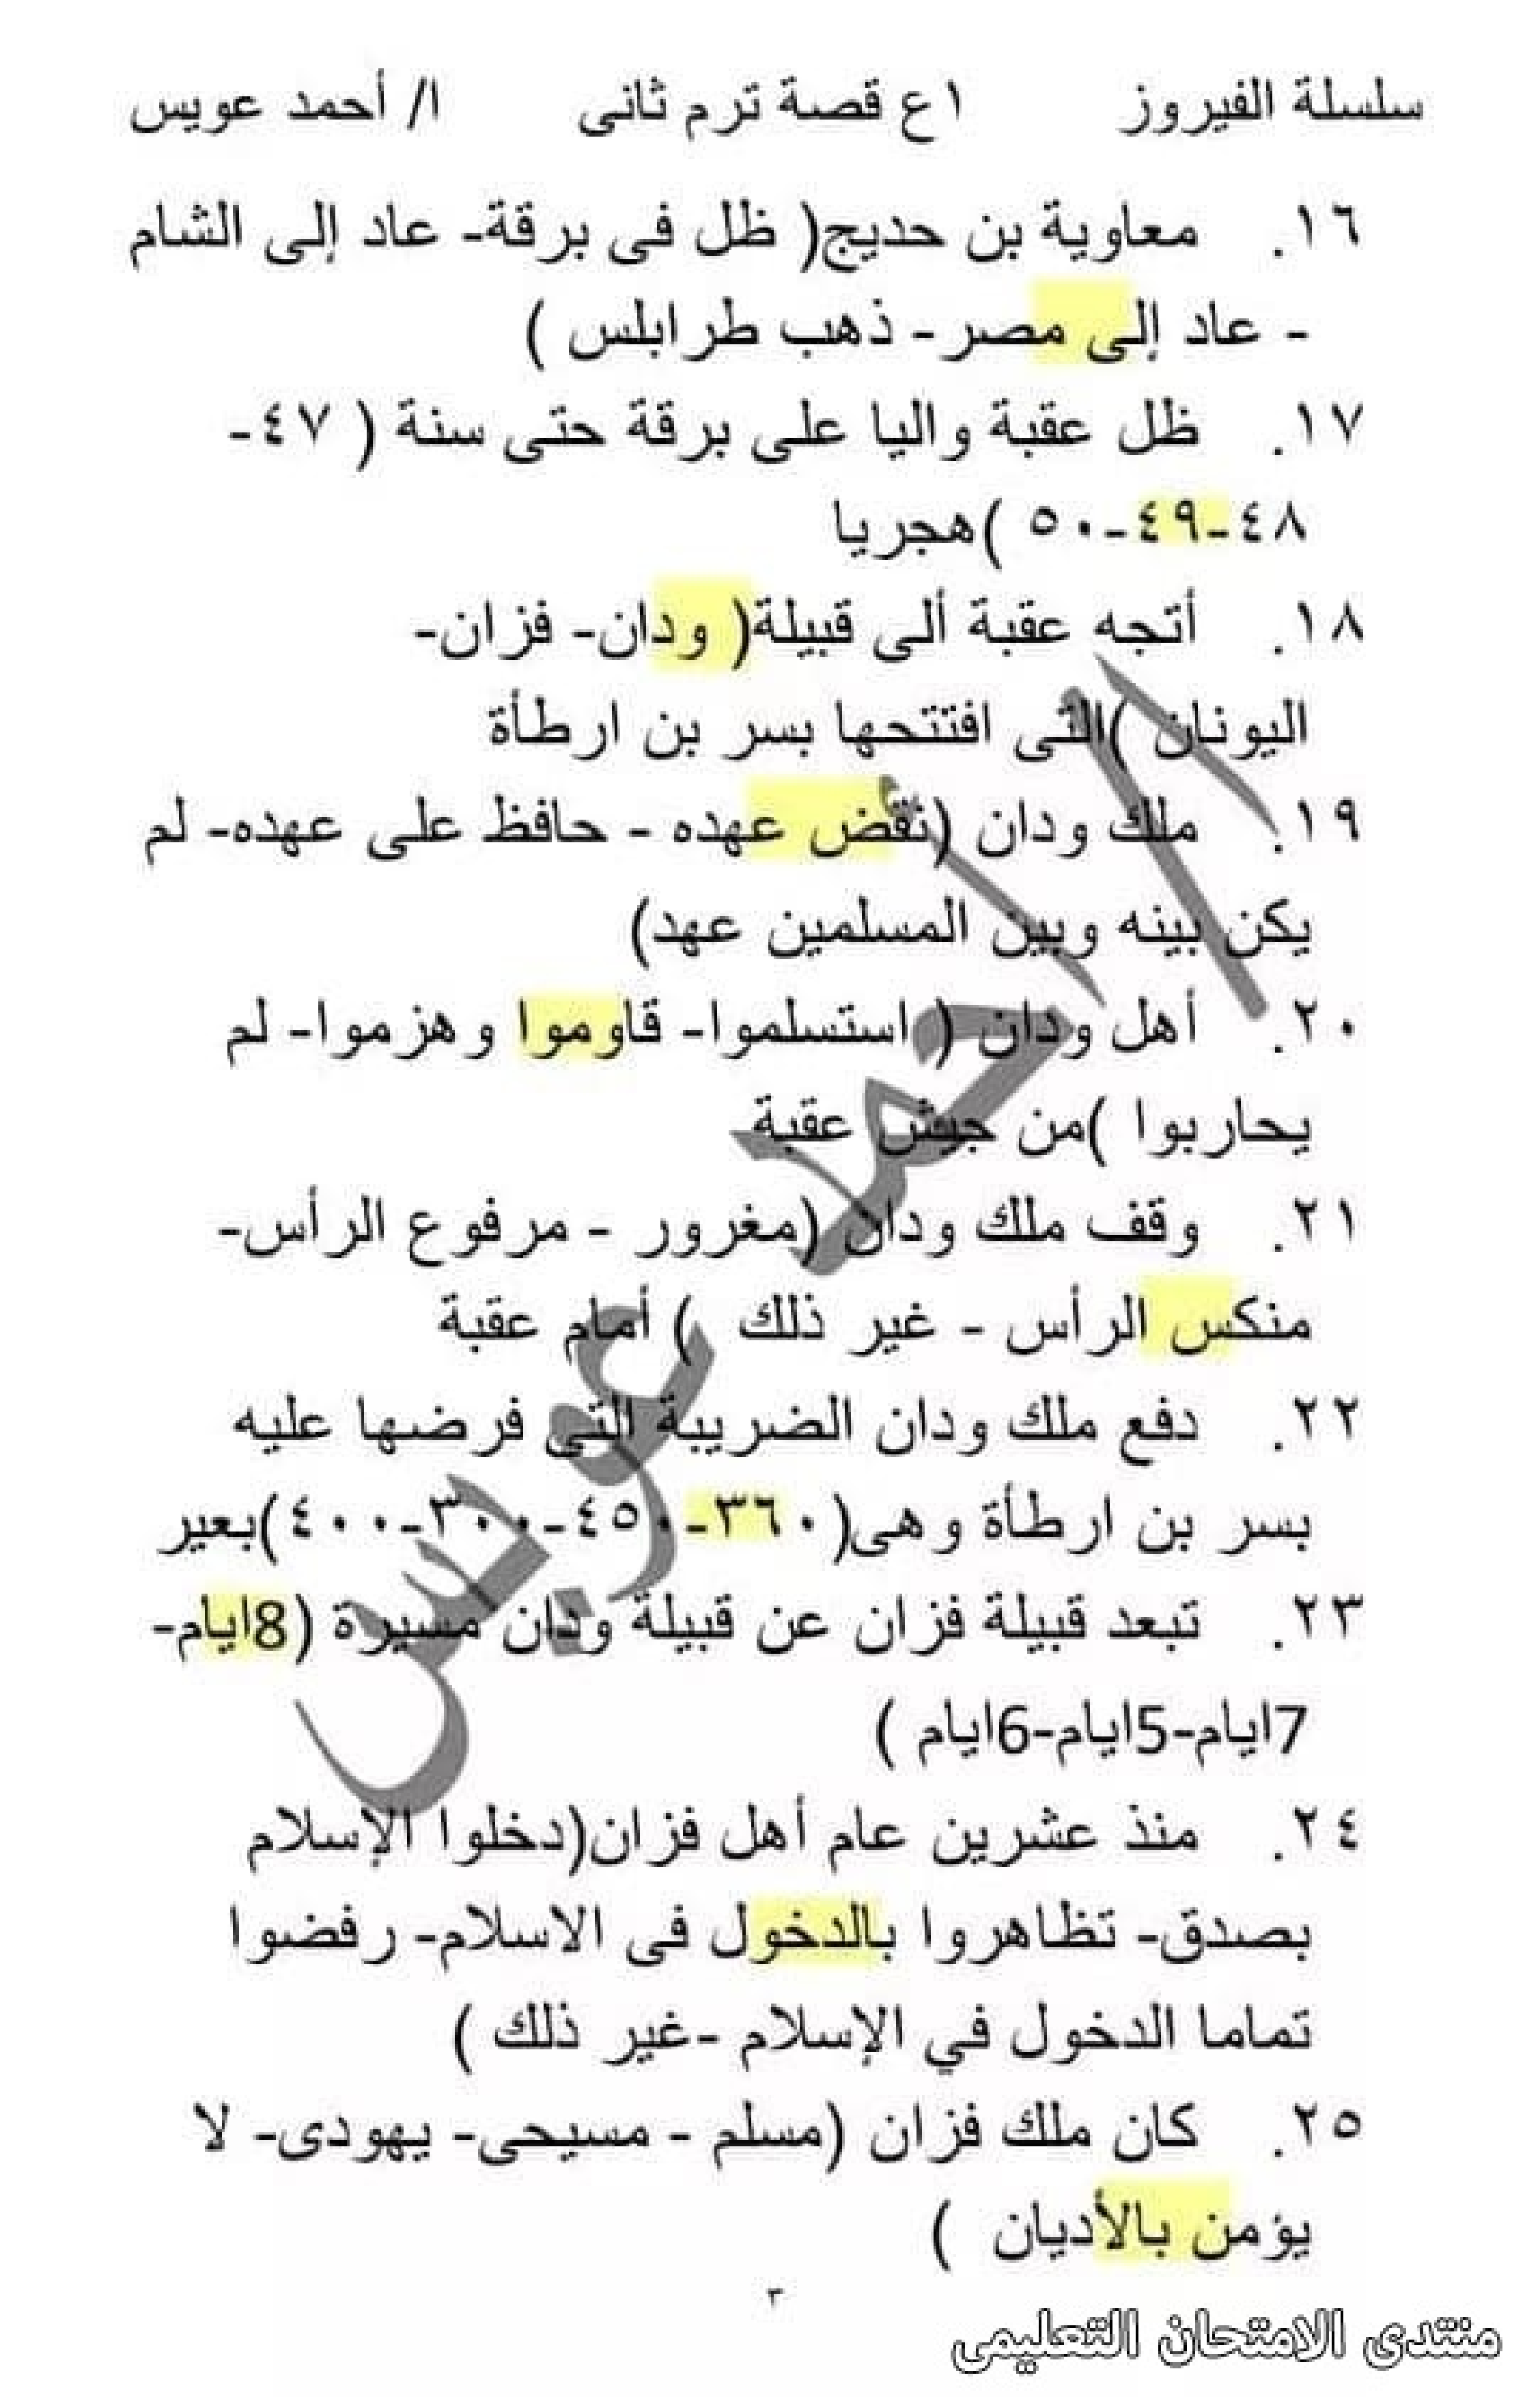 سلسلة الفيروز ١ع قصة ترم ثانى ا/ أحمد عويس
١٦. معاوية بن حديج( ظل فى برقة- عاد إلى الشام
- عاد إلى مصر- ذهب طرابلس )
١٧. ظل عقبة واليا على برقة حتى سنة ( ٤٧-
٤٨-٤٩-٥٠ )هجريا
١٨. أتجه عقبة ألى قبيلة( ودان- فزان-
اليونان )التى افتتحها بسر بن ارطأة
١٩. ملك ودان (نقض عهده - حافظ على عهده- لم
يكن بينه وبين المسلمين عهد)
٢٠. أهل ودان ( استسلموا- قاوموا وهزموا- لم
يحاربوا )من جيش عقبة
٢١. وقف ملك ودان (مغرور - مرفوع الرأس-
منكس الرأس - غير ذلك ) أمام عقبة
٢٢. دفع ملك ودان الضريبة التى فرضها عليه
بسر بن ارطأة وهى(٣٦٠-٤٥٠-٣٠٠-٤٠٠)بعير
٢٣. تبعد قبيلة فزان عن قبيلة ودان مسيرة (8ايام-
7ايام-5ايام-6ايام )
٢٤. منذ عشرين عام أهل فزان(دخلوا الإسلام
بصدق- تظاهروا بالدخول فى الاسلام- رفضوا
تماما الدخول في الإسلام -غير ذلك )
٢٥. كان ملك فزان (مسلم - مسيحى- يهودى- لا
يؤمن بالأديان )
٣
منتدى الامتحان التعليمى
ا/ أحمد عويس